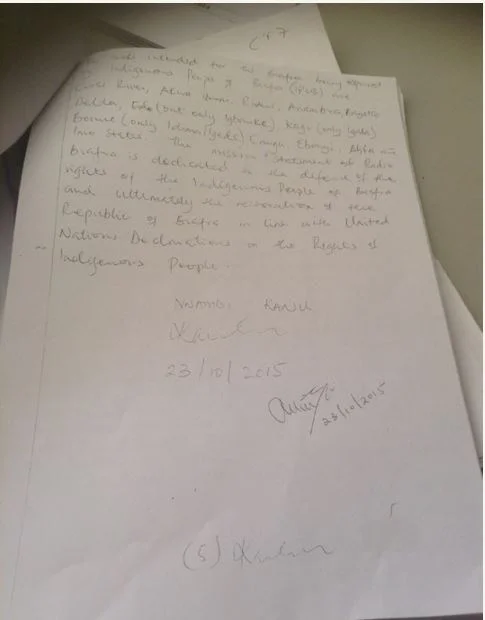 C47
intended for the Biafra being
by Indigenous People of Biafra (IPOB) are
Cross River, Akwa Ibom, Rivers, Anambra, Bayelsa
Delta, Edo (but only Igbanke) Kogi (only Igala)
Benue (only Idoma/Igede) Enugu Ebonyi, Abia and
Imo States. The mission statement of Radio
Biafra is dedicated to the defence of the
rights of the Indigenous People of Biafra
and ultimately the restoration of the
Republic of Biafra in line with United
Nations Declarations on the Rights of
Indigenous People.
NNAMDI KANU
23/10/2015
23/10/2015
(5)